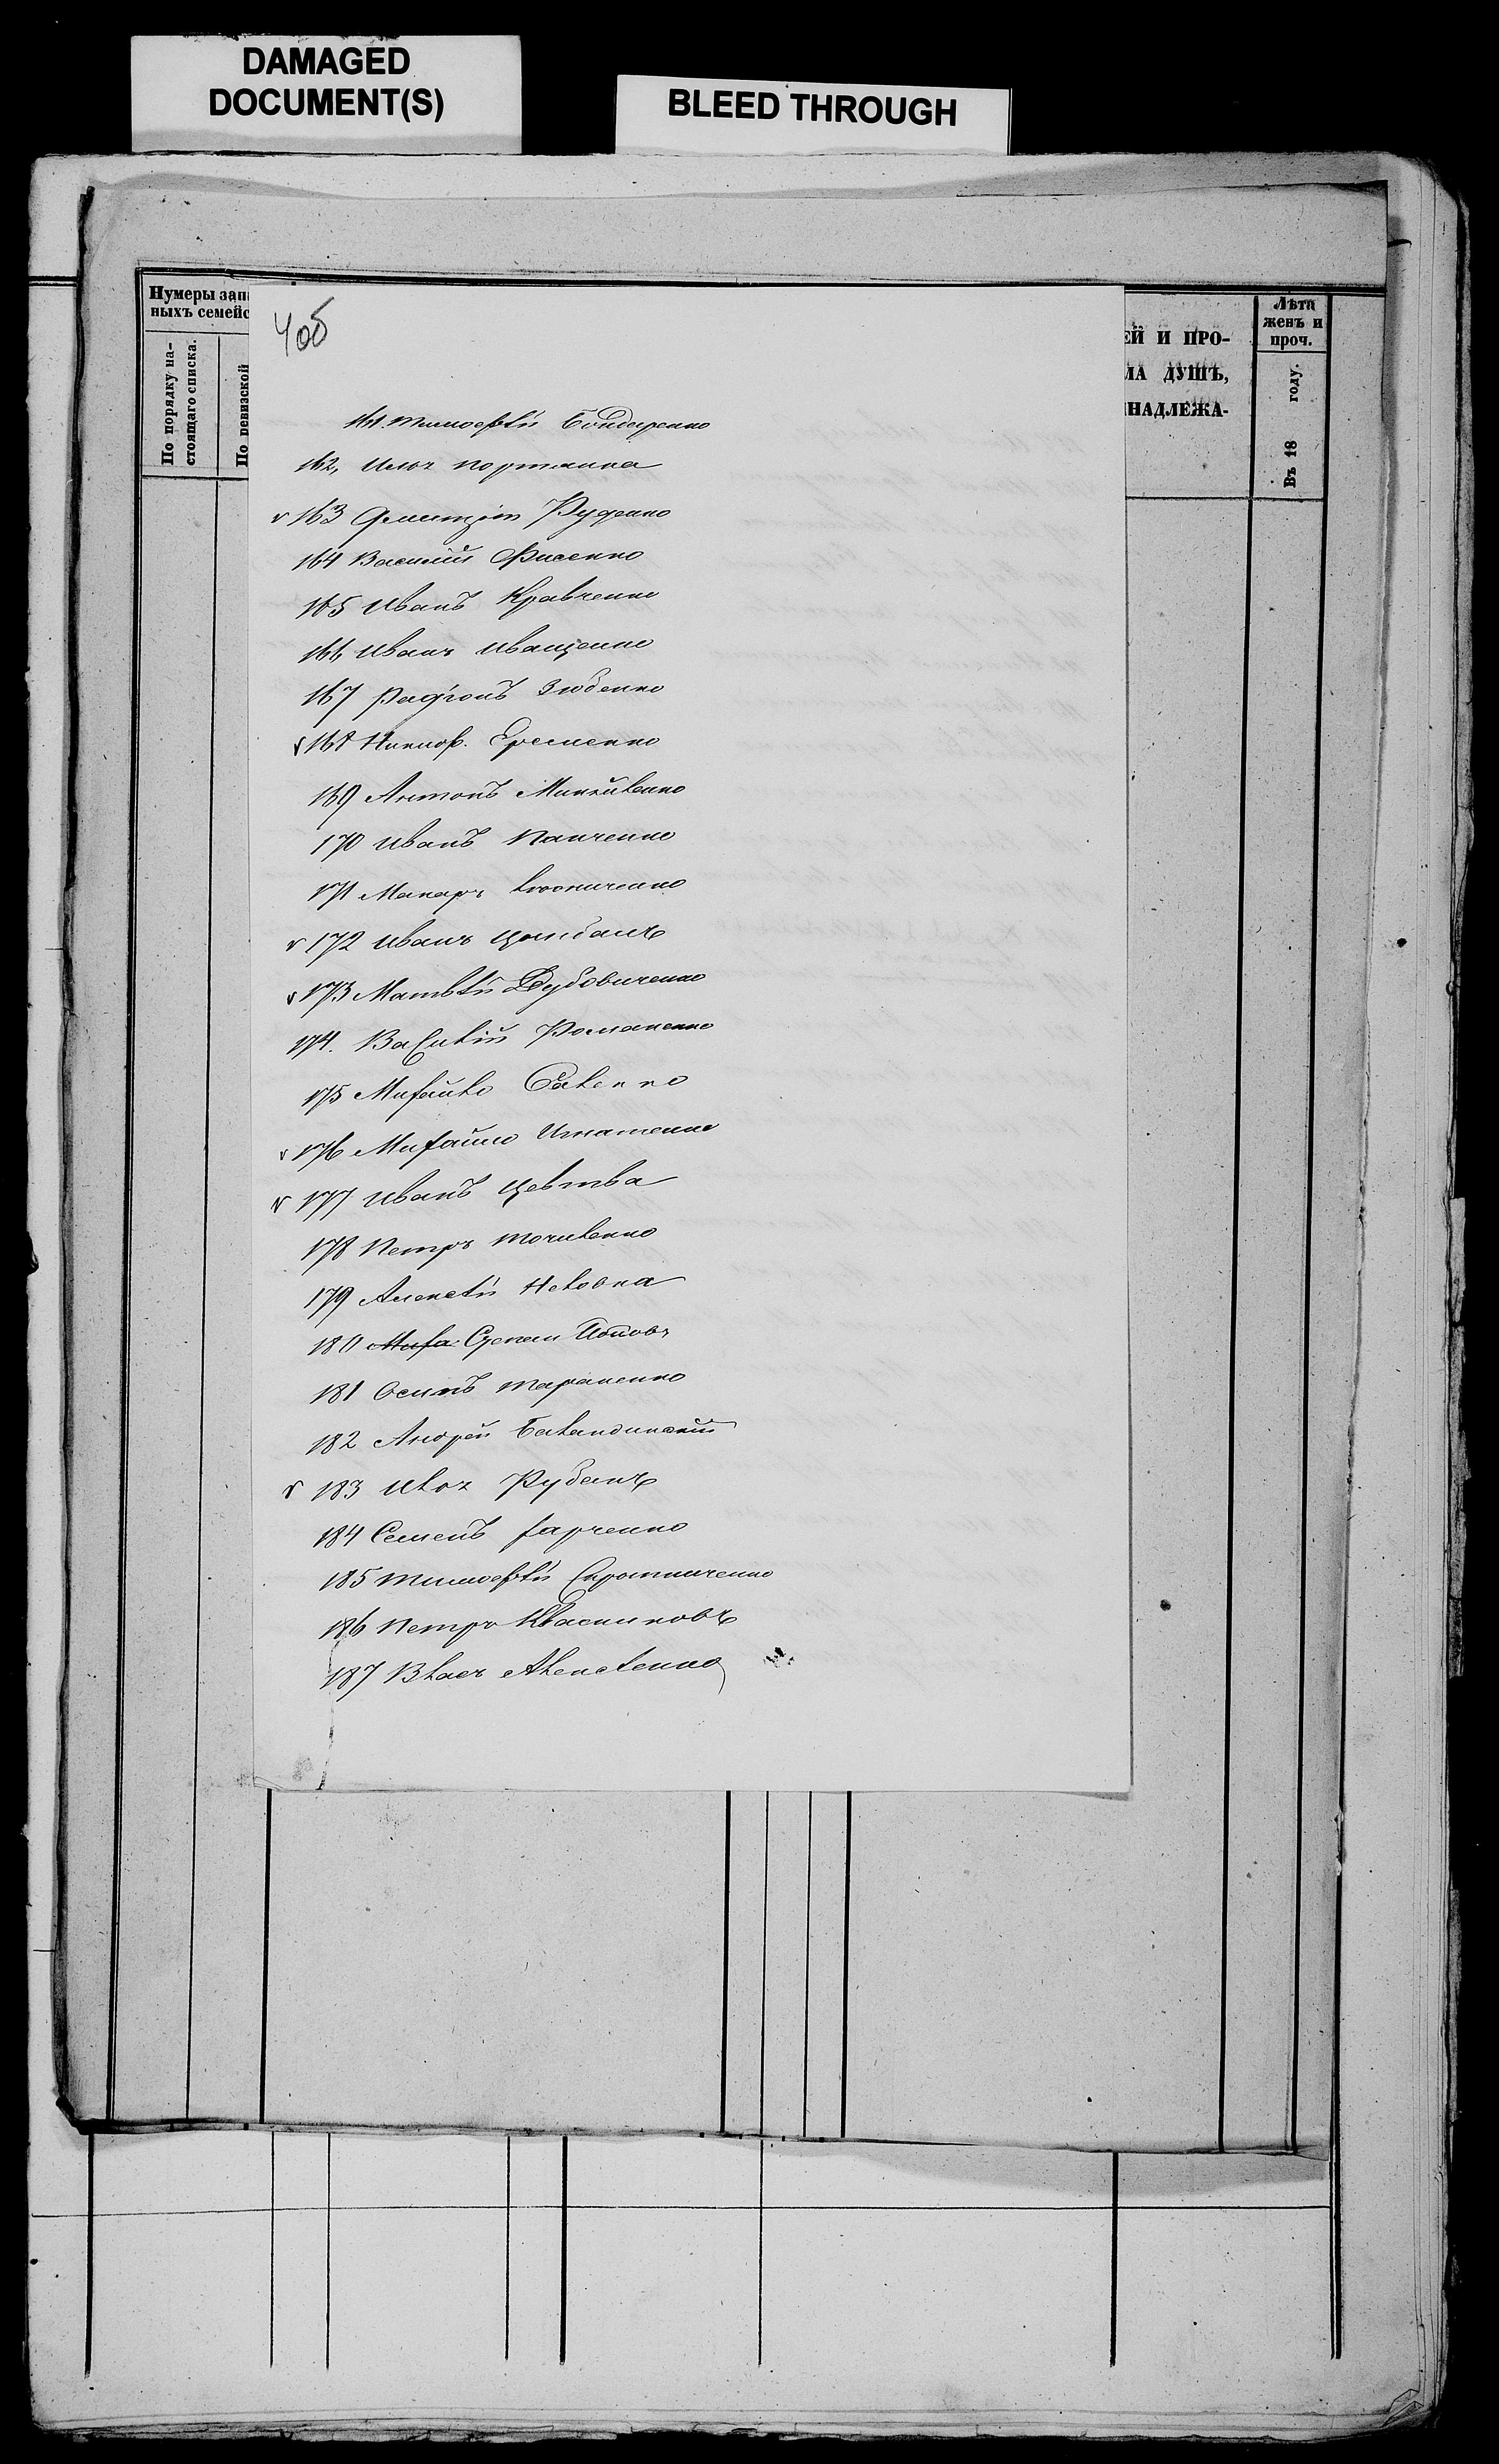 DAMAGED
DOCUMENT(S)
BLEED THROUGH
Нумеры зап
ныхъ семейс
По порядку на-
стоящаго списка.
По ревизской
ЕЙ И ПРО-
ЛА ДУШЪ,
НАДЛЕЖА-
Лѣта
женъ и
проч.
Въ 18 году.
405
161. Тимоѳѣй Бондаренко
162, Илья Портянка
v 163 Руденко
164 Василій Фисенко
165 Иванъ Кравченко
166 Иванъ Иващенко
167 Радіонъ Зюбенко
v 168 Никиф. Еременко
169 Антонъ
170 Иванъ Панченко
171 Макаръ
v 172 Иванъ Цымбалъ
v 173 Матвѣй Дубовиченко
174. Василій Романенко
175 Михайло Саленко
v 176 Михайло Игнатенко
v 177 Иванъ Цевтва
178 Петръ Точиленко
179 Алексѣй
180 Миха. Степан Поповъ
181 Осипъ Тараненко
182 Андрей Баландинскій
v 183 Илья Рубанъ
184 Семенъ Харченко
185 Тимоѳѣй Сиротниченко
186 Петръ Квасниковъ
187 Власъ Алексеенко